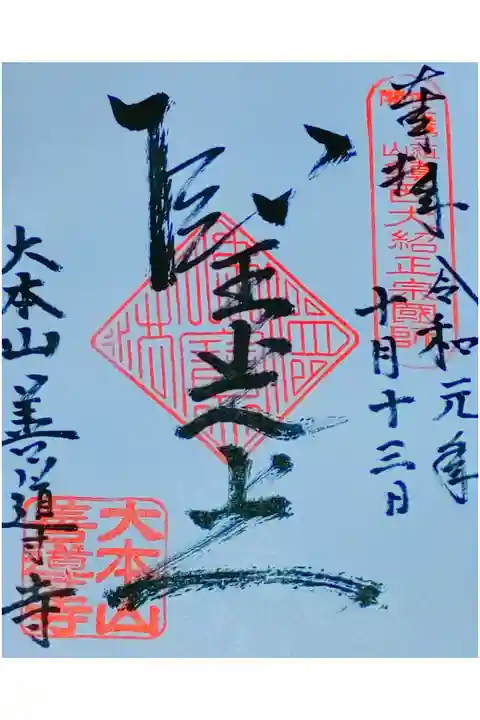 奉拝
令和元年
十月十三日
大紹正宗國師
聖光上人
大本山善導寺
大本山
善導寺